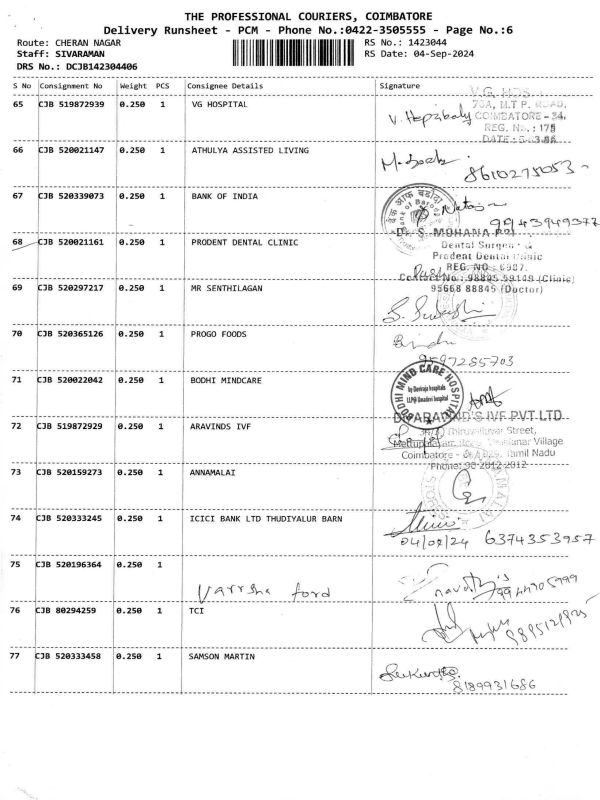 THE PROFESSIONAL COURIERS, COIMBATORE
Delivery Runsheet - PCM - Phone No.:0422-3505555 - Page No.:6
Route: CHERAN NAGAR RS No.: 1423044
Staff: SIVARAMAN RS Date: 04-Sep-2024
DRS No.: DCJB142304406
S No Consignment No Weight PCS Consignee Details Signature
65 CJB 519872939 0.250 1 VG HOSPITAL
V.G. HOS
70A, M.T P. ROAD,
COIMBATORE - 34.
REG. No.: 175
66 CJB 520021147 0.250 1 ATHULYA ASSISTED LIVING
8610275053
67 CJB 520339073 0.250 1 BANK OF INDIA
Bank of Baroda
9943949377
68 CJB 520021161 0.250 1 PRODENT DENTAL CLINIC
Dr. S. MOHANA
Dental Surgeon
Prodent Dental Clinic
REG. NO : 6987.
(Clinic)
95668 88845 (Doctor)
69 CJB 520297217 0.250 1 MR SENTHILAGAN
70 CJB 520365126 0.250 1 PROGO FOODS
9597285703
71 CJB 520022042 0.250 1 BODHI MINDCARE
BODHI MIND CARE HOSPITAL
by Deviraja hospitals
LLP@ Umadevi hospital
72 CJB 519872929 0.250 1 ARAVINDS IVF
IVF PVT LTD
Street,
Village
Coimbatore - Tamil Nadu
Phone:
73 CJB 520159273 0.250 1 ANNAMALAI
74 CJB 520333245 0.250 1 ICICI BANK LTD THUDIYALUR BARN
04/09/24 6374353957
75 CJB 520196364 0.250 1 Varrsha ford
76 CJB 80294259 0.250 1 TCI
77 CJB 520333458 0.250 1 SAMSON MARTIN
8189931686